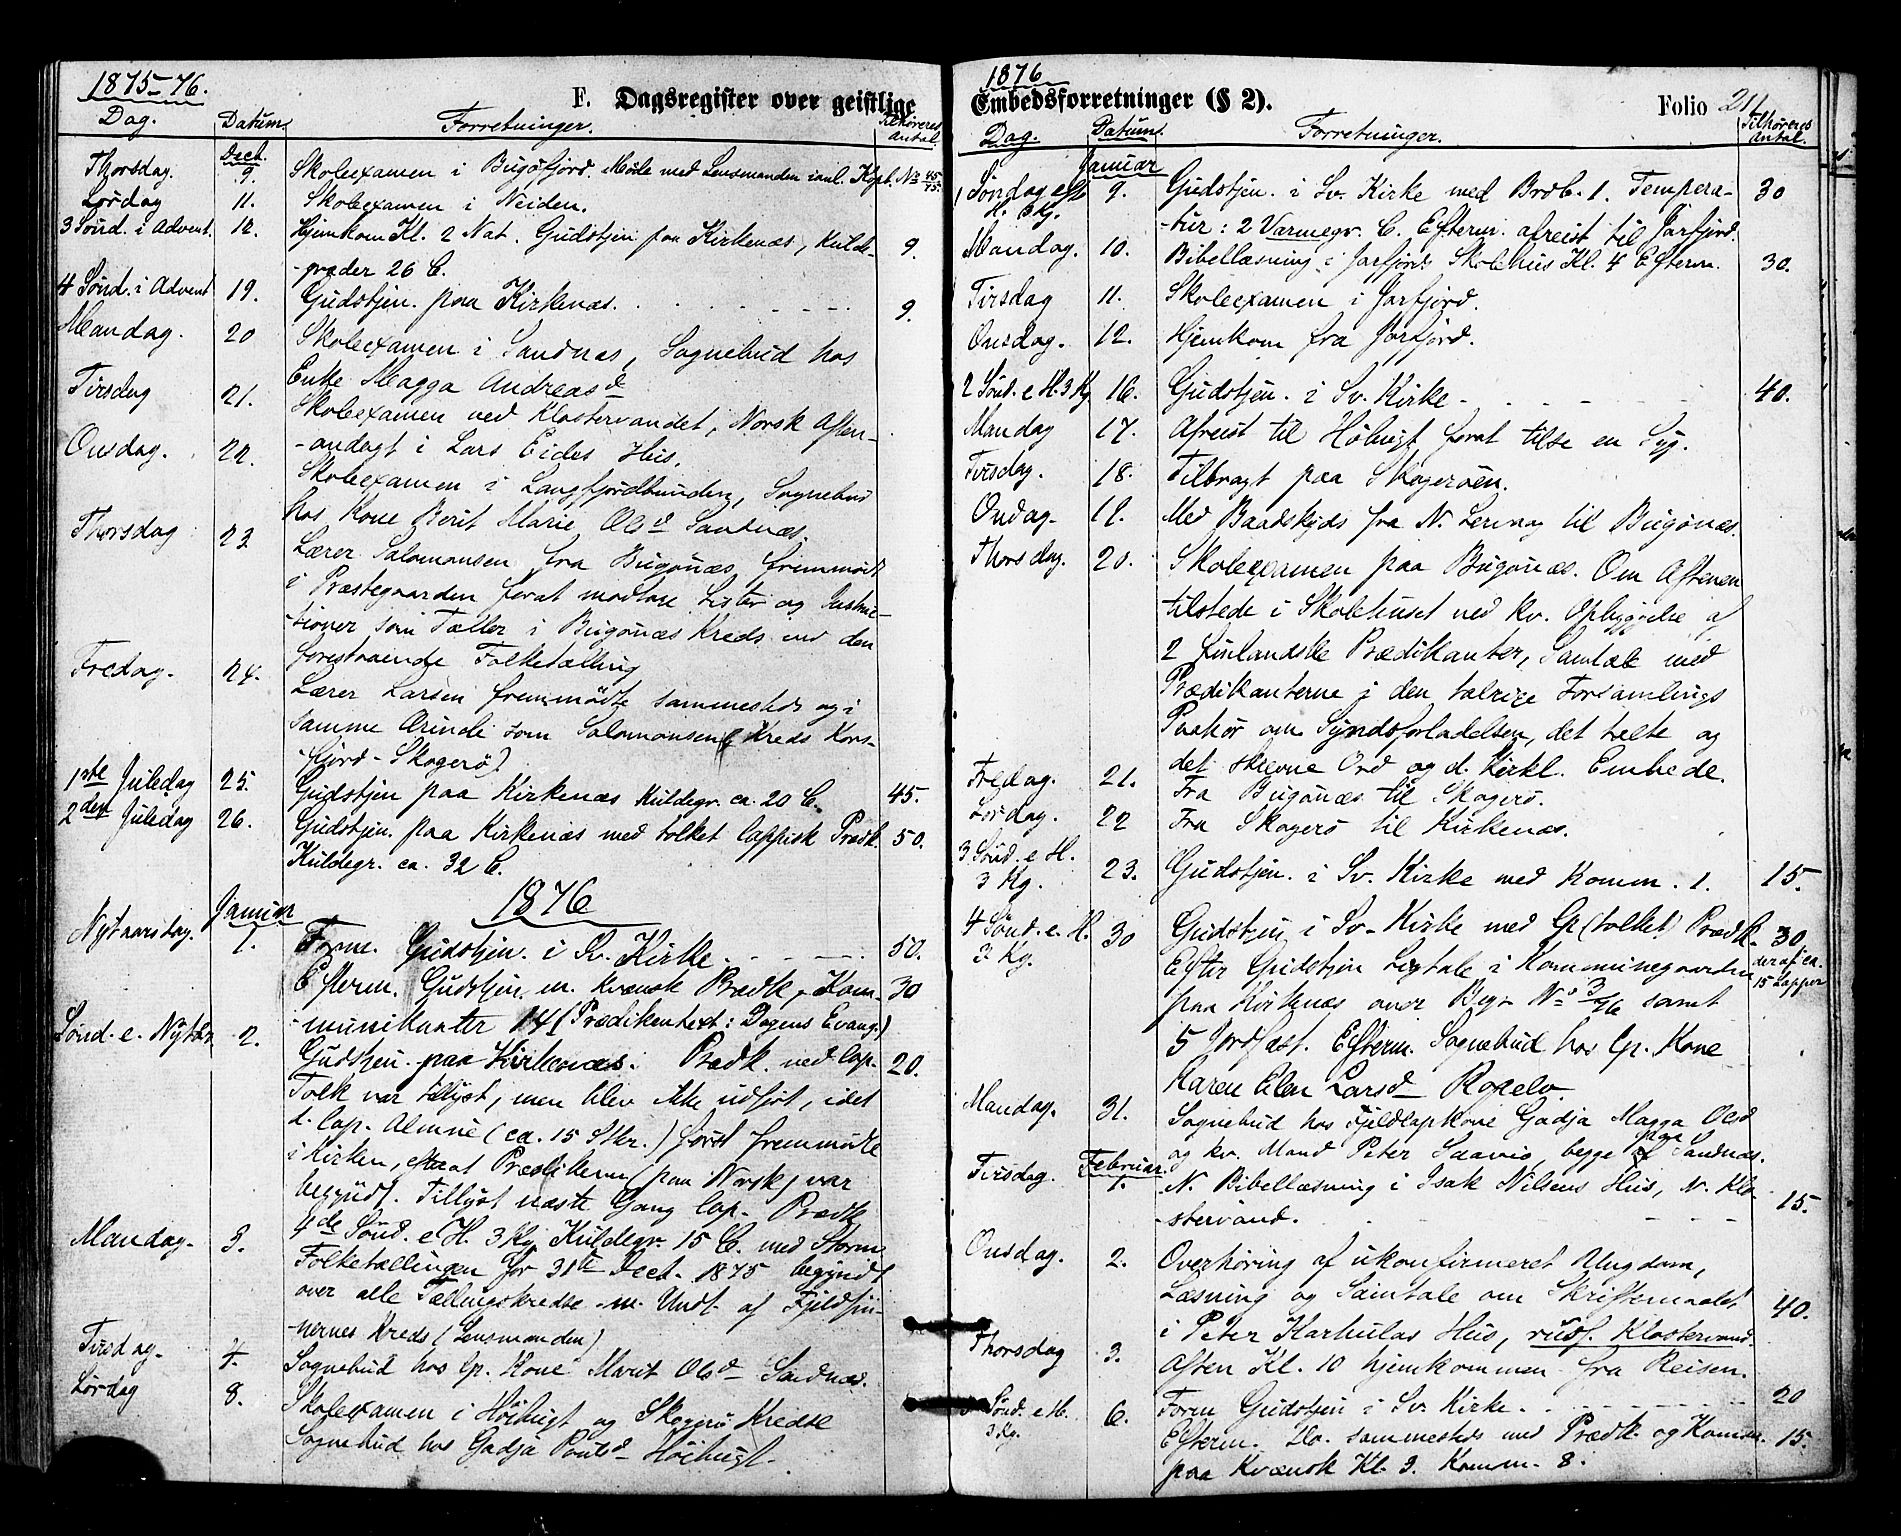 1875-76.
F. Dagsregister over geistlige
Dag. Datum. Forretninger. Tilhöreres Antal.
Dect.
Thorsdag. 9. Skoleexamen i Bugöfjord. Möde med Lensmanden ianl. Kopb. No 45/75.
Lördag 11. Skoleexamen i Neiden.
3 Sönd. i Advent. 12. Hjemkom Kl. 2 Nat. Gudstjen paa Kirkenæs, Kulde- 9.
-grader 26 C.
4 Sönd. i Advent 19. Gudstjen. paa Kirkenæs. 9.
Mandag. 20 Skoleexamen i Sandnæs, Sognebud hos
Enke Magga Andreasd
Tirsdag 21. Skoleexamen ved Klostervandet, Norsk Aften-
-andagt i Lars Eides Hus.
Onsdag. 22. Skoleexamen i Langfjordbunden, Sognebud
hos Kone Berit Marie Olsd Sandnæs.
Thorsdag 23 Lærer Salomonsen fra Bugönæs fremmödt
i Præstegaarden forat modtage Lister og Instruc-
-tioner som Tæller i Bugönæs Kreds ved den
forestaaende Folketælling
Fredag. 24. Lærer Larsen fremmödte sammesteds og i
samme Ærinde som Salomonsen (Kreds Kors-
-fjord - Skogerö)
1ste Juledag 25. Gudstjen paa Kirkenæs Kuldegr. ca. 20 C. 45.
2den Juledag 26. Gudstjen. paa Kirkenæs med tolket lappisk Prædk. 50.
Kuldegr. ca. 32 C.
1876
Januar
Nytaarsdag. 1. Form. Gudstjen. i Sv. Kirke. 50.
Efterm. Gudstjen. m. Kvænsk Prædk, Kom- 30
-munikanter 14 (Prædikentext: Dagens Evang.)
Sönd. e. Nytår 2. Gudstjen. paa Kirkenæs. Prædk. ved lap. 20.
Tolk var tillyst, men blev ikke udfört, idet
d. lap. Almue (ca. 15 Stkr.) först fremmödte
i Kirken, efterat Prædikenen (paa Norsk) var
begyndt. Tillyst næste Gang lap. Prædk
4de Sönd. e H. 3 Kg Kuldegr. 15 C. med Storm
Mandag. 3. Folketællingen for 31te Dect. 1875 begyndt
over alle Tællingskredse m. Undt. af Fjeldfin-
-nernes Kreds (Lensmanden)
Tirsdag. 4. Sognebud hos lp. Kone Marit Olsd Sandnæs.
Lördag 8. Skoleexamen i Höibugt og Skogerö Kredse
Sognebud hos Gadja Poulsd Höibugt.
1876
Embedsforretninger (§ 2).
Folio 211
Dag. Datum. Forretninger. Tilhöreres Antal.
Januar
1 Söndag eft H. 3 Kg. 9. Gudstjen. i Sv. Kirke med Brdb. 1. Tempera- 30
-tur: 2 Varmegr. C. Efterm. afreist til Jarfjord.
Mandag. 10. Bibellæsning i Jarfjords Skolehus Kl. 4 Efterm. 30.
Tirsdag 11. Skoleexamen i Jarfjord.
Onsdag. 12. Hjemkom fra Jarfjord.
2 Sönd. e H. 3 Kg 16. Gudstjen. i Sv. Kirke 40.
Mandag 17. Afreist til Höibugt forat tilse en Syg.
Tirsdag. 18. Tilbragt paa Skogeröen.
Onsdag. 19. Med Baadskyds fra N. Leirvag til Bugönæs.
Thorsdag. 20. Skoleexamen paa Bugönæs. Om Aftenen
tilstede i Skolehuset ved kv. Opbyggelse af
2 finlandske Prædikanter, Samtale med
Prædikanterne i den talrige Forsamlings
Paahör om Syndsforladelsen, det talte og
det skrevne Ord og d. Kirkl. Embede.
Fredag. 21. Fra Bugönæs til Skogerö.
Lördag. 22 Fra Skogerö til Kirkenæs.
3 Sönd. e H. 3 Kg. 23. Gudstjen. i Sv. Kirke med Komm. 1. 15.
4 Sönd. e. H. 3 Kg. 30 Gudstjen i Sv. Kirke med lp (tolket) Prædk. 30, deraf ca. 15 Lapper
Efter Gudstjen Ligtale i Kommunegaarden
paa Kirkenæs over Begr No 3/76 samt
5 Jordfæst. Efterm. Sognebud hos lp. Kone
Karen Elen Larsd Ropelv.
Mandag. 31. Sognebud hos Fjeldlapkone Gadja Magga Olsd
og kv. Mand Peter Saavio, begge paa Sandnæs.
Februar.
Tirsdag. 1. N. Bibellæsning i Isak Nilsens Hus, N. Klo- 15.
-stervand.
Onsdag. 2. Overhöring af ukonfirmeret Ungdom,
Læsning og Samtale om Skriftemaalet 40.
i Peter Karhulas Hus, russ. Klostervand.
Thorsdag 3. Aften Kl. 10 hjemkommen fra Reisen.
5 Sönd. e H. 3 Kg. 6. Form Gudstjen i Sv. Kirke. 20
Efterm. Do. sammesteds med Prædk. og Komm. 15.
paa Kvænsk Kl. 3. Komm. 8.